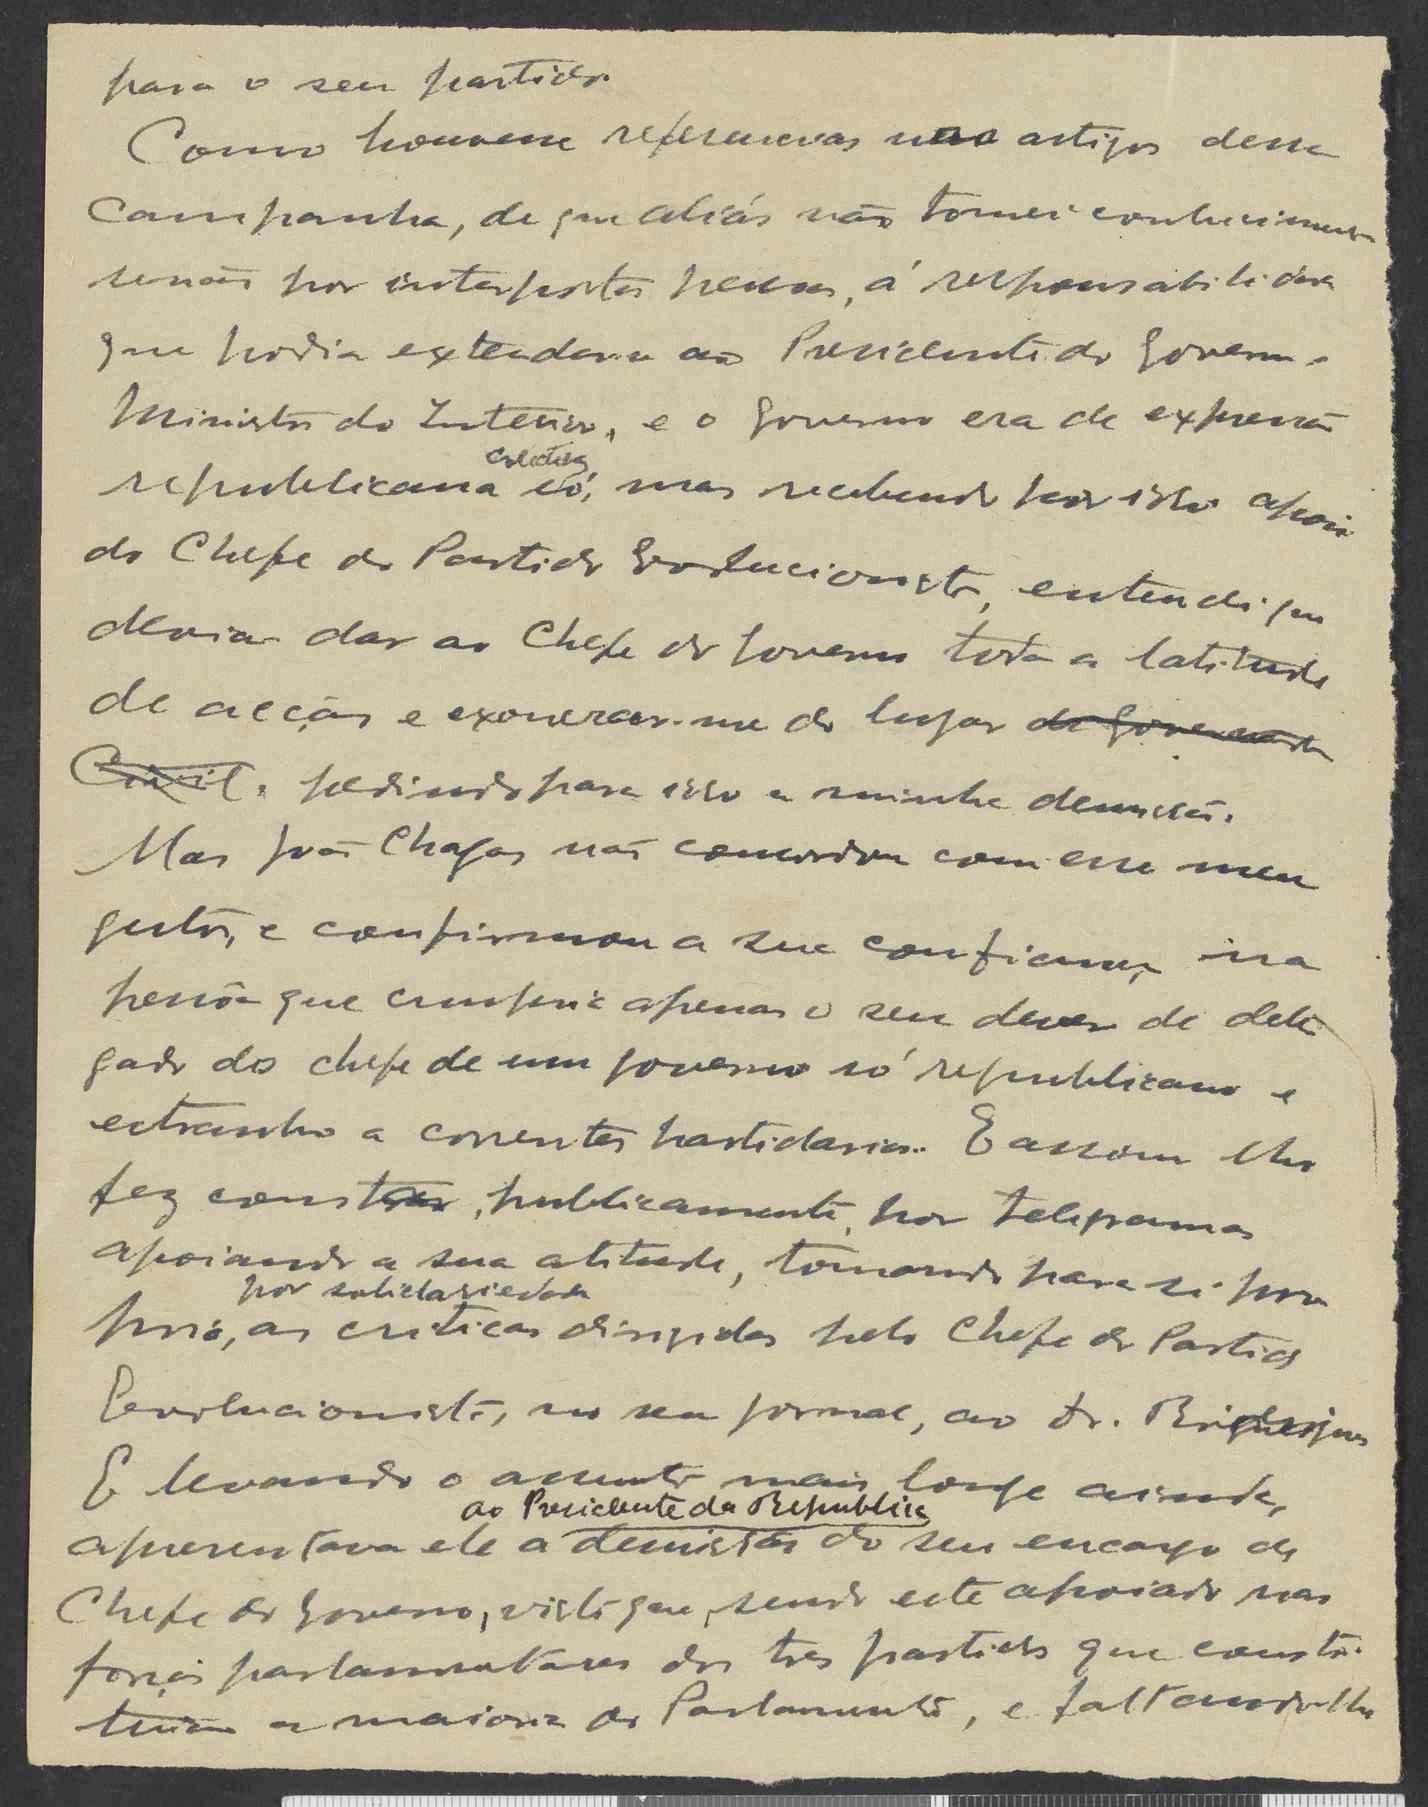 para o seu partido.
Como houvesse referencias nos artigos dessa
campanha, de que aliás não tomei conhecimento
senão por interpostas pessoas, á responsabilidade
que podia extender-se ao Presidente do Governo e
Ministro do Interior, e o Governo era de expressão
colectiva
republicana só, mas recebendo por isso apoio
do Chefe do Partido Evolucionista, entendi que
devia dar ao Chefe do Governo toda a latitude
de acção e exonerar-me do lugar do Governador
Civil, pedindo para isso a minha demissão.
Mas João Chagas não concordou com esse meu
gesto, e confirmou a sua confiança na
pessôa que cumpria apenas o seu dever de dele-
gado do chefe de um governo só republicano e
estranho a correntes partidarias. E assim lho
fez constar, publicamente, por telegramas
apoiando a sua atitude, tomando para si pro-
por solidariedade
prio, as criticas dirigidas pelo Chefe do Partido
Evolucionista, no seu jornal, ao dr. Rodrigues
E levando o assunto mais longe ainda,
ao Presidente da Republica
apresentava ele a demissão do seu encargo de
Chefe do Governo, visto que, sendo este apoiado nas
forças parlamentares dos tres partidos que consti-
tuiam a maioria do Parlamento, e faltando-lhe